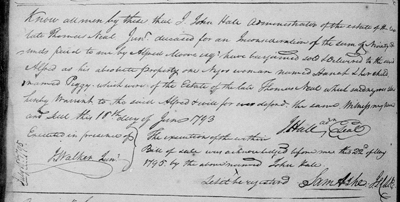 Know all men by these that I John Hall Administrator of the estate of the
late Thomas Neal Junr. deceased for an Inconsideration of the sum of Ninety
pds paid to me by Alfred Moore esqr. have bargained sold & Delivered to the said
Alfred as his absolute property one Negro woman named Hannah & her child
named Peggy which were of the Estate of the late Thomas Neal which said negroes I do
hereby Warrant to the said Alfred & will for ever defend the same. Witness my hand
and Seal this 18th day of June 1793
Executed in presence of
J Walker Junr.
J Hall adr. Seal
The execution of the within
Bill of sale was acknowledged before me the 22d of May
1795 by the above named John Hall
Let it be registered Sam Ashe